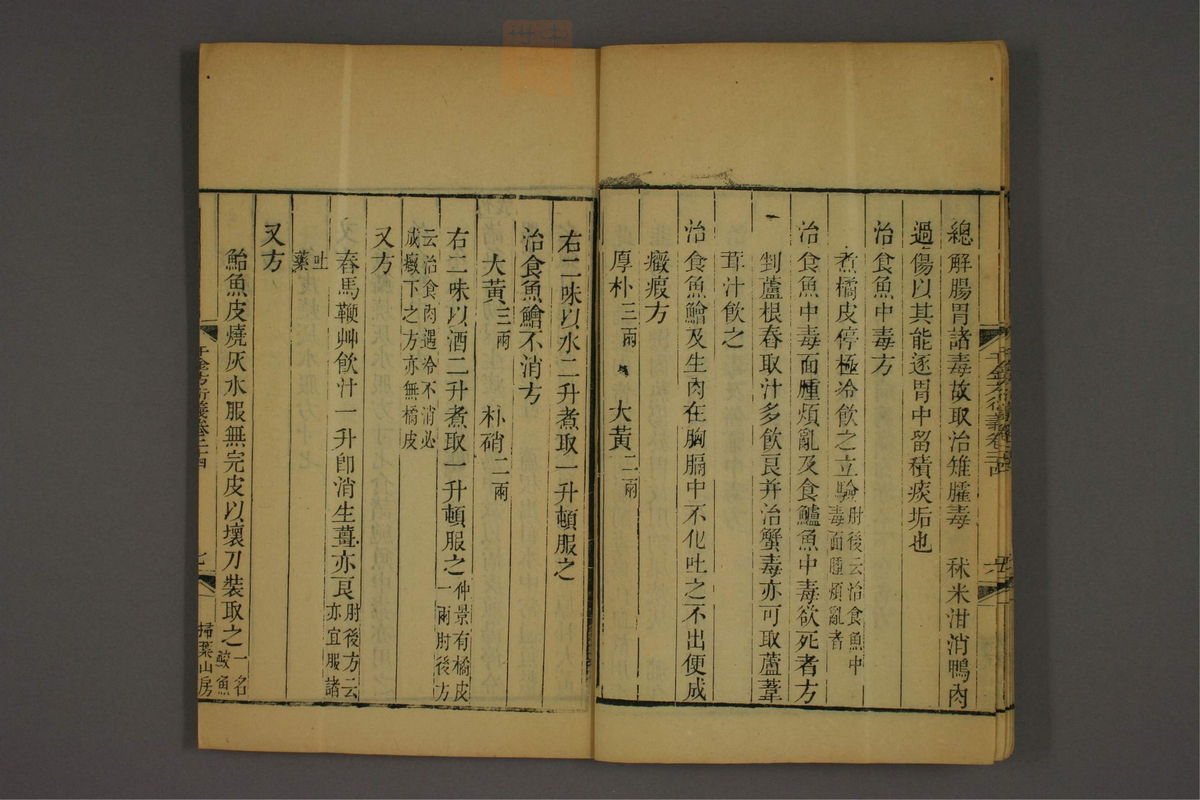 總解腸胃諸毒故取治雉臛毒　秫米泔消鴨肉
過傷以其能逐胃中留積痰垢也
治食魚中毒方
煮橘皮停極冷飲之立驗肘後云治食魚中
毒面腫煩亂者
治食魚中毒面腫煩亂及食鱸魚中毒欲死者方
剉蘆根舂取汁多飲良并治蟹毒亦可取蘆葦
茸汁飲之
治食魚鱠及生肉在胸膈中不化吐之不出便成
癥瘕方
厚朴三兩　大黃二兩
千金方衍義卷二十四
六
右二味以水二升煮取一升頓服之
治食魚鱠不消方
大黃三兩　朴硝二兩
右二味以酒二升煮取一升頓服之仲景有橘皮
一兩肘後方
云治食肉遇冷不消必
成癥下之方亦無橘皮
又方
舂馬鞭艸飲汁一升卽消生薑亦良肘後方云
亦宜服諸
吐
藥
又方
鮐魚皮燒灰水服無完皮以壞刀裝取之一名
鮫魚
千金方衍義卷二十四
七
掃葉山房